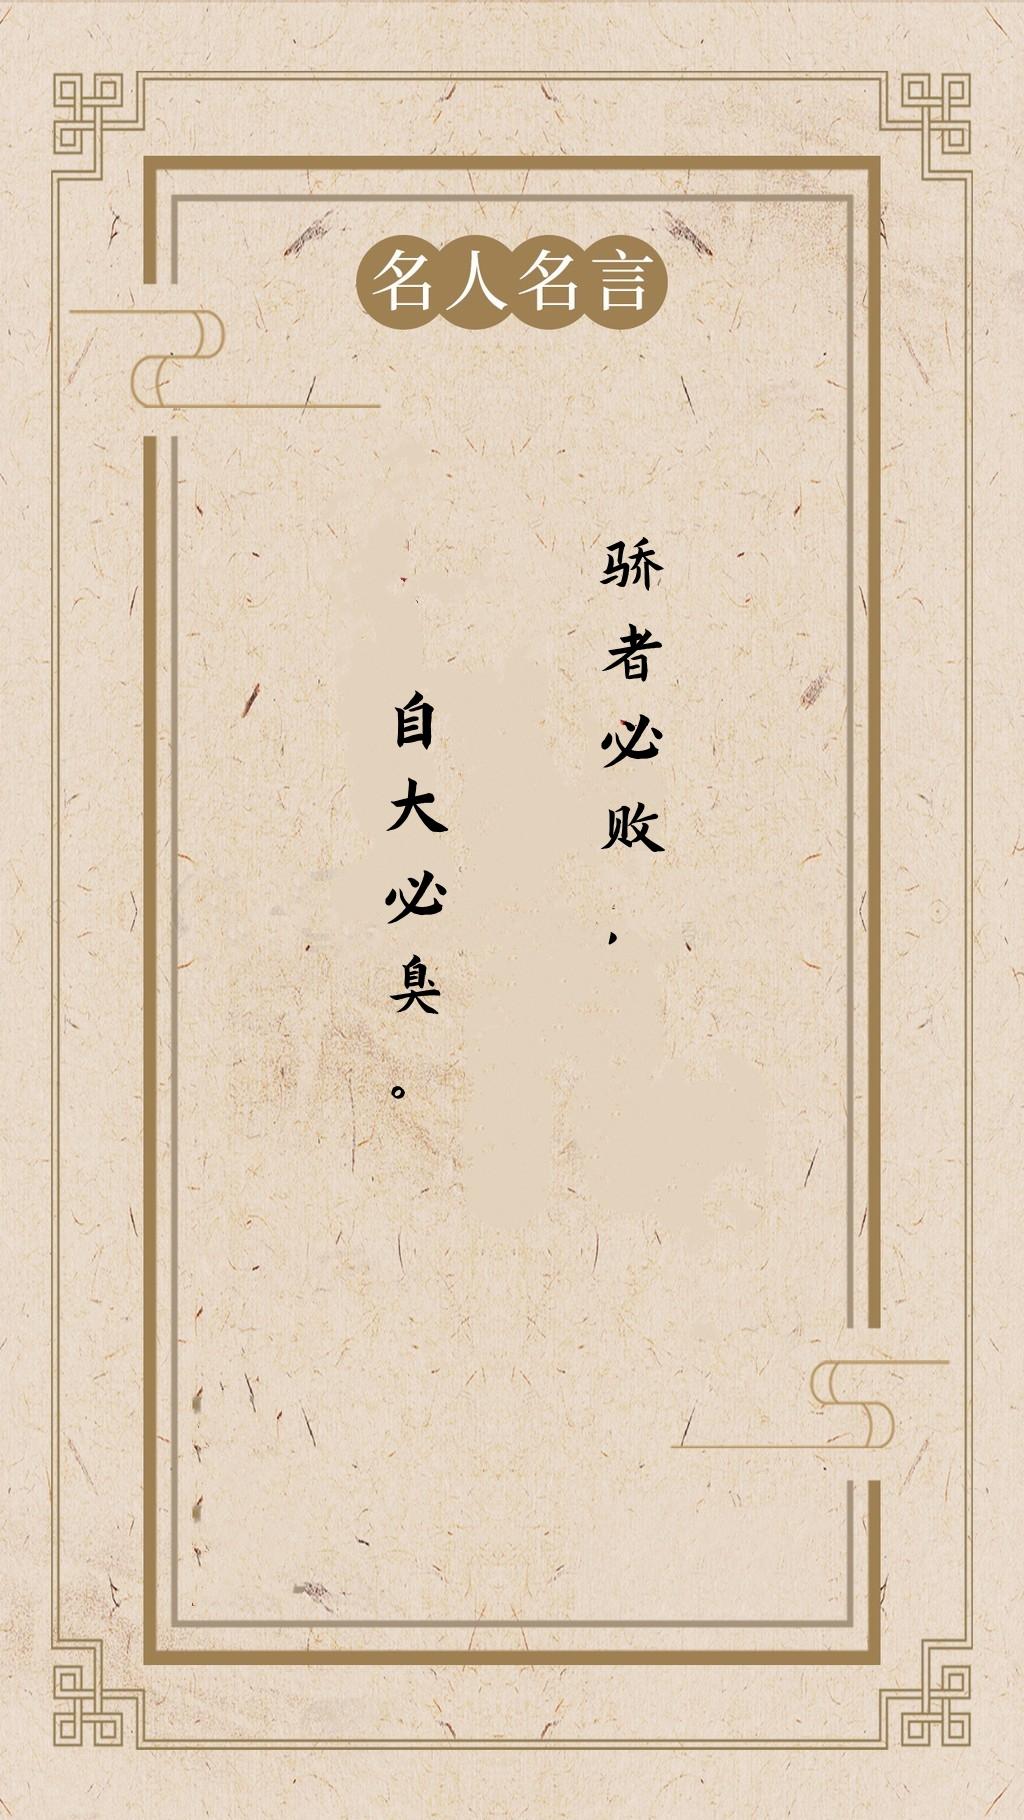 名人名言
骄者必败，
自大必臭。